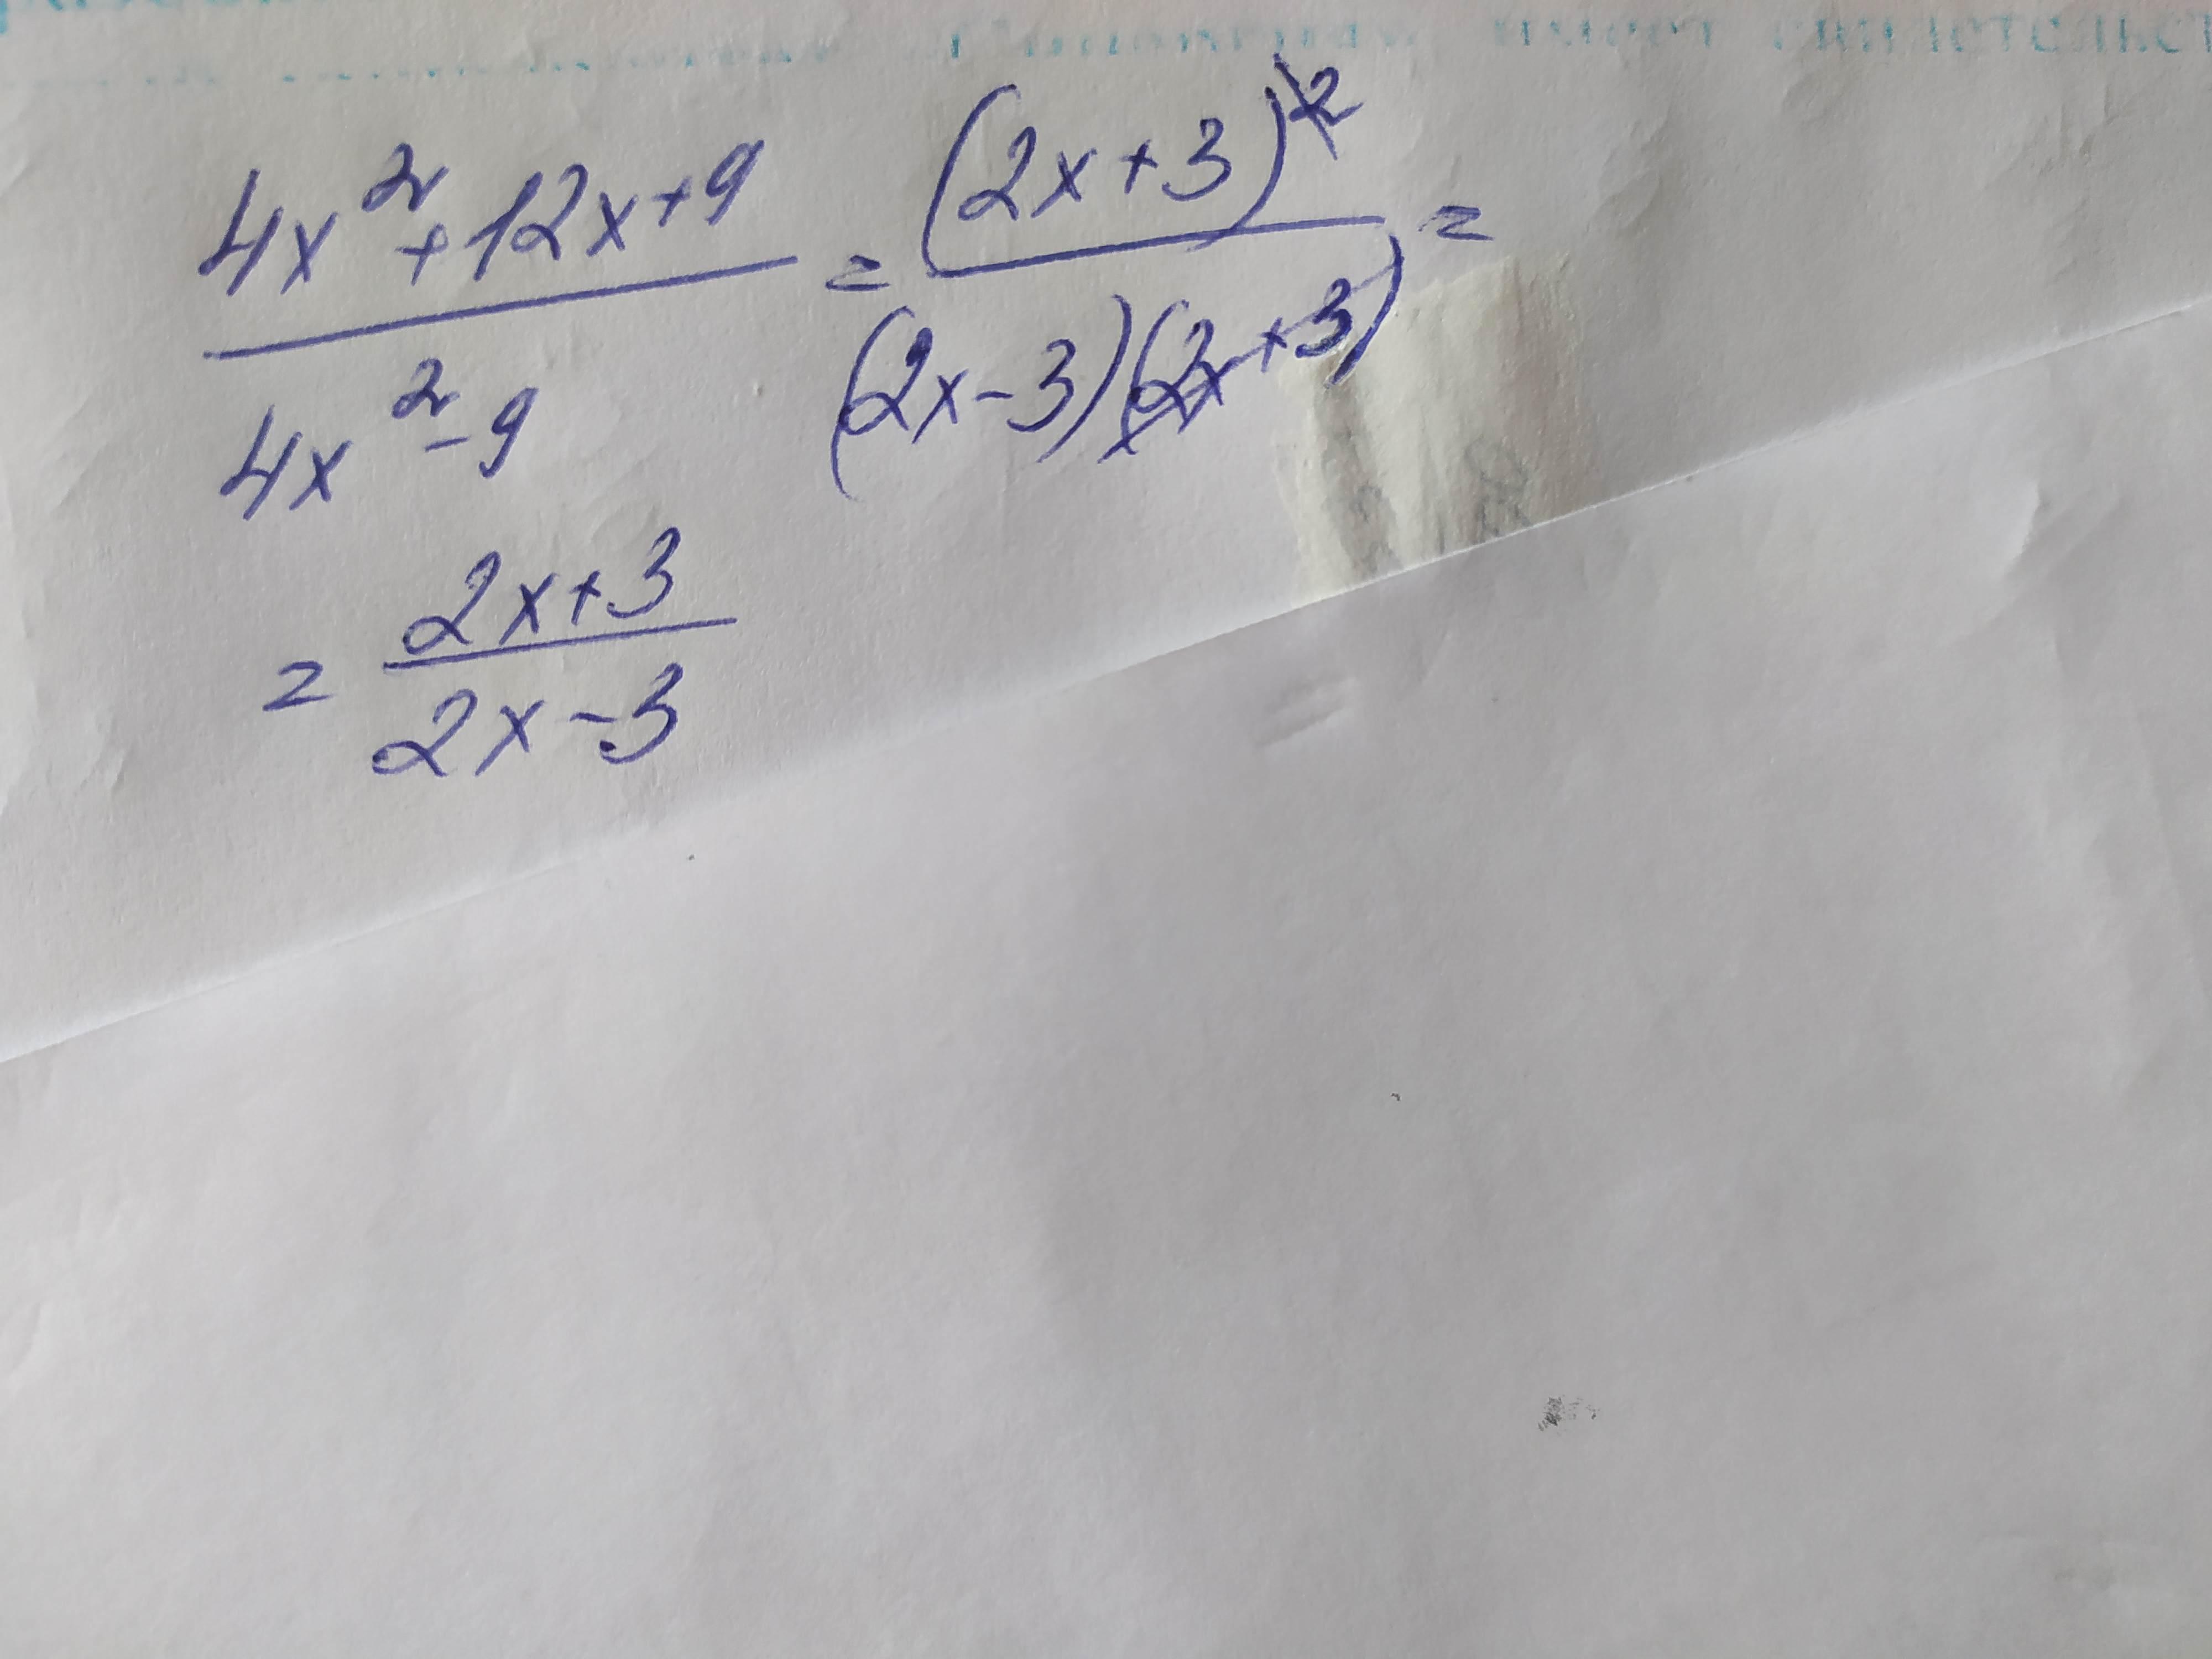 4x²+12x+9 / 4x²-9 = (2x+3)² / (2x-3)(2x+3) =
= 2x+3 / 2x-3